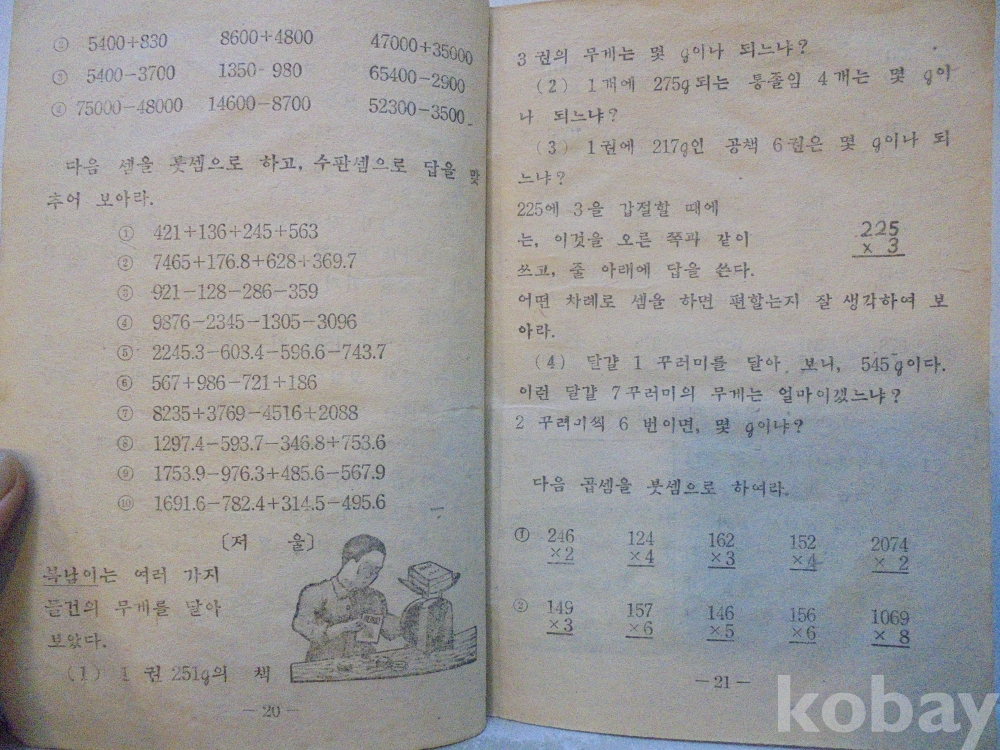 ② 5400+830 8600+4800 47000+35000
③ 5400-3700 1350-980 65400-2900
④ 75000-48000 14600-8700 52300-3500
다음 셈을 붓셈으로 하고, 수판셈으로 답을 맞
추어 보아라.
① 421+136+245+563
② 7465+176.8+628+369.7
③ 921-128-286-359
④ 9876-2345-1305-3096
⑤ 2245.3-603.4-596.6-743.7
⑥ 567+986-721+186
⑦ 8235+3769-4516+2088
⑧ 1297.4-593.7-346.8+753.6
⑨ 1753.9-976.3+485.6-567.9
⑩ 1691.6-782.4+314.5-495.6
〔저 울〕
복남이는 여러 가지
물건의 무게를 달아
보았다.
(1) 1 권 251g의 책
—20—
3 권의 무게는 몇 g이나 되느냐?
(2) 1개에 275g되는 통졸임 4개는 몇 g이
나 되느냐?
(3) 1권에 217g인 공책 6권은 몇 g이나 되
느냐?
225에 3을 갑절할 때에
는, 이것을 오른 쪽과 같이
쓰고, 줄 아래에 답을 쓴다.
225
× 3
어떤 차례로 셈을 하면 편할는지 잘 생각하여 보
아라.
(4) 달걀 1 꾸러미를 달아 보니, 545g이다.
이런 달걀 7꾸러미의 무게는 얼마이겠느냐?
2 꾸러미씩 6 번이면, 몇 g이냐?
다음 곱셈을 붓셈으로 하여라.
① 246 124 162 152 2074
×2 ×4 ×3 ×4 × 2
② 149 157 146 156 1069
×3 ×6 ×5 ×6 × 8
—21—
kobay